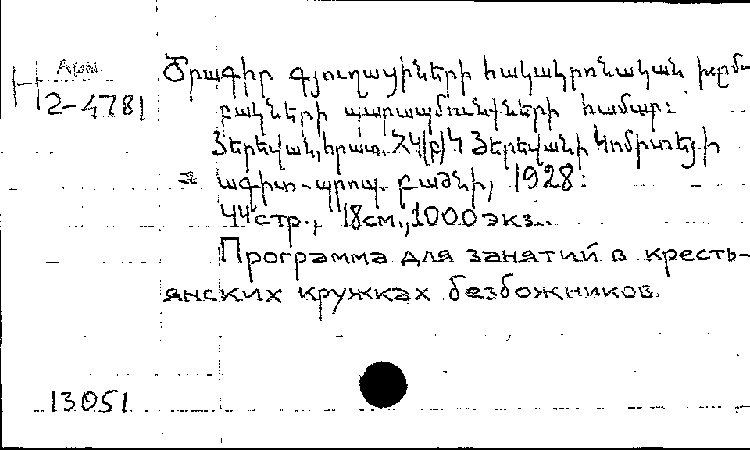 Арм.
Н 2-4781
Ծրագիր գյուղացիների հակակրոնական խըմ-
բակների պարապմունքների համար:
Յերեվան, հրատ. ՀԿ(բ)Կ Յերեվանի Կոմիտեյի
ագիտ-պրոպ. բաժնի, 1928:
44 стр., 18 см., 1000 экз.
Программа для занятий в кресть-
янских кружках безбожников.
13051